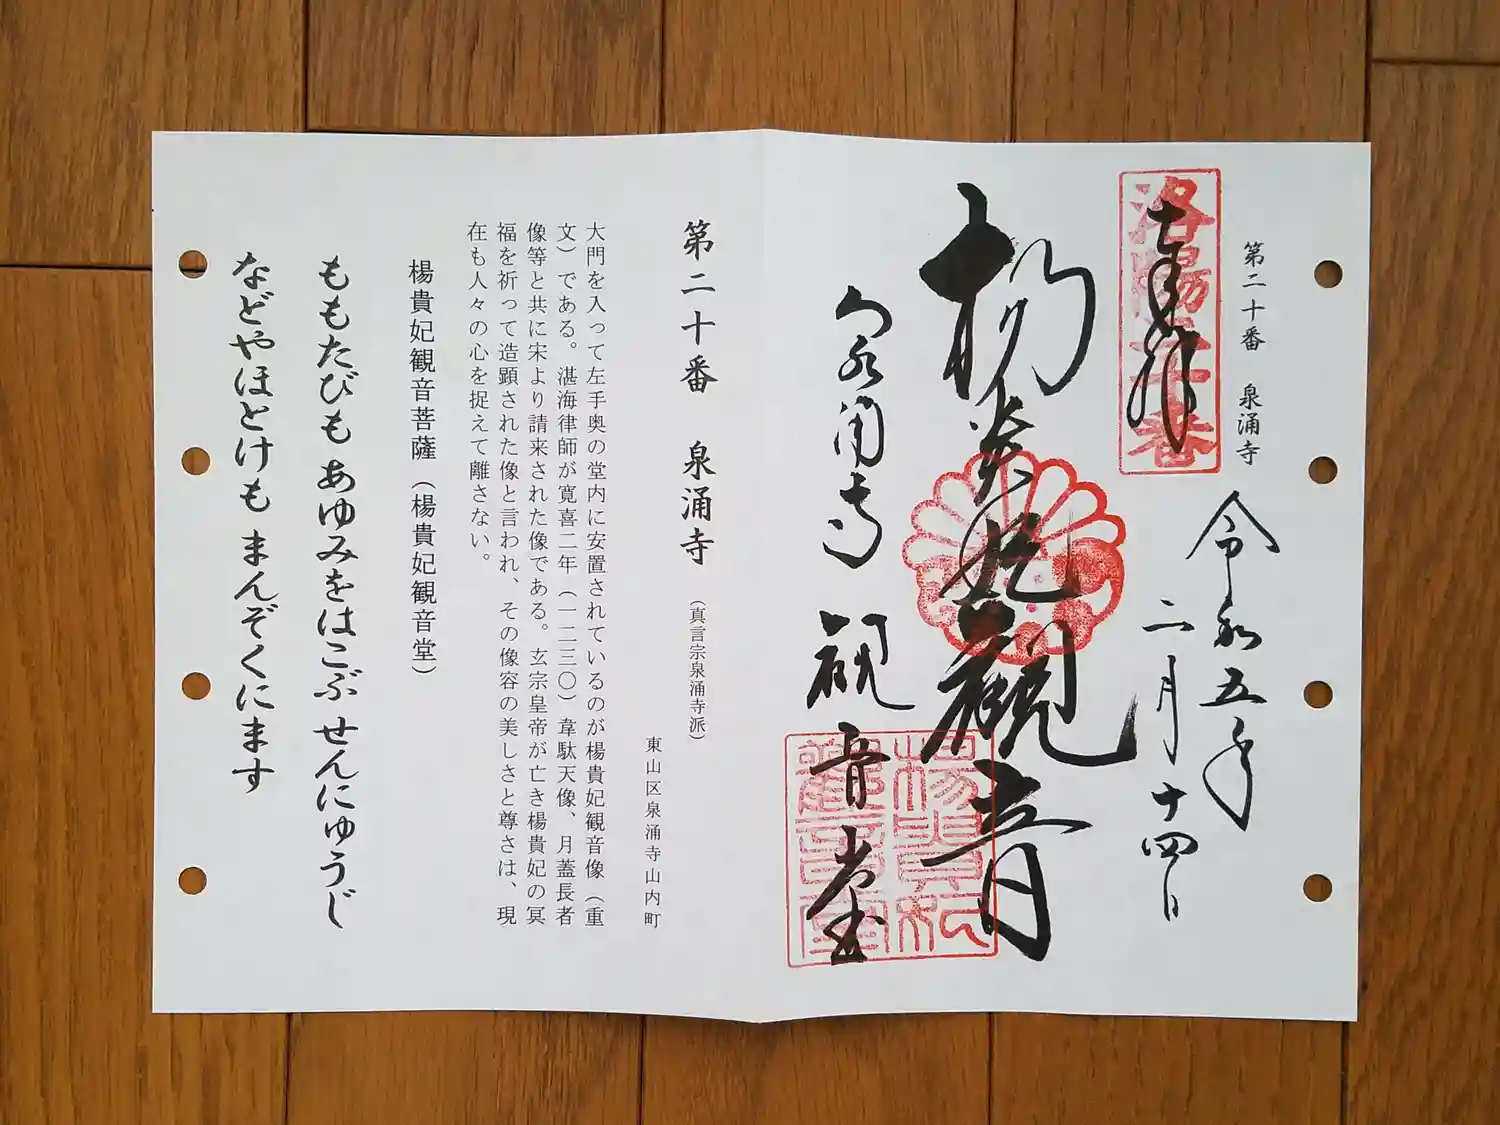 第二十番 泉涌寺
洛陽二十番
奉拝
令和五年
二月十四日
楊貴妃観音
泉涌寺 観音堂
楊貴妃
観音堂
第二十番 泉涌寺(真言宗泉涌寺派)
東山区泉涌寺山内町
大門を入って左手奥の堂内に安置されているのが楊貴妃観音像(重
文)である。湛海律師が寛喜二年(一二三〇)韋駄天像、月蓋長者
像等と共に宋より請来された像である。玄宗皇帝が亡き楊貴妃の冥
福を祈って造顕された像と言われ、その像容の美しさと尊さは、現
在も人々の心を捉えて離さない。
楊貴妃観音菩薩(楊貴妃観音堂)
ももたびも あゆみをはこぶ せんにゅうじ
などやほとけも まんぞくにます